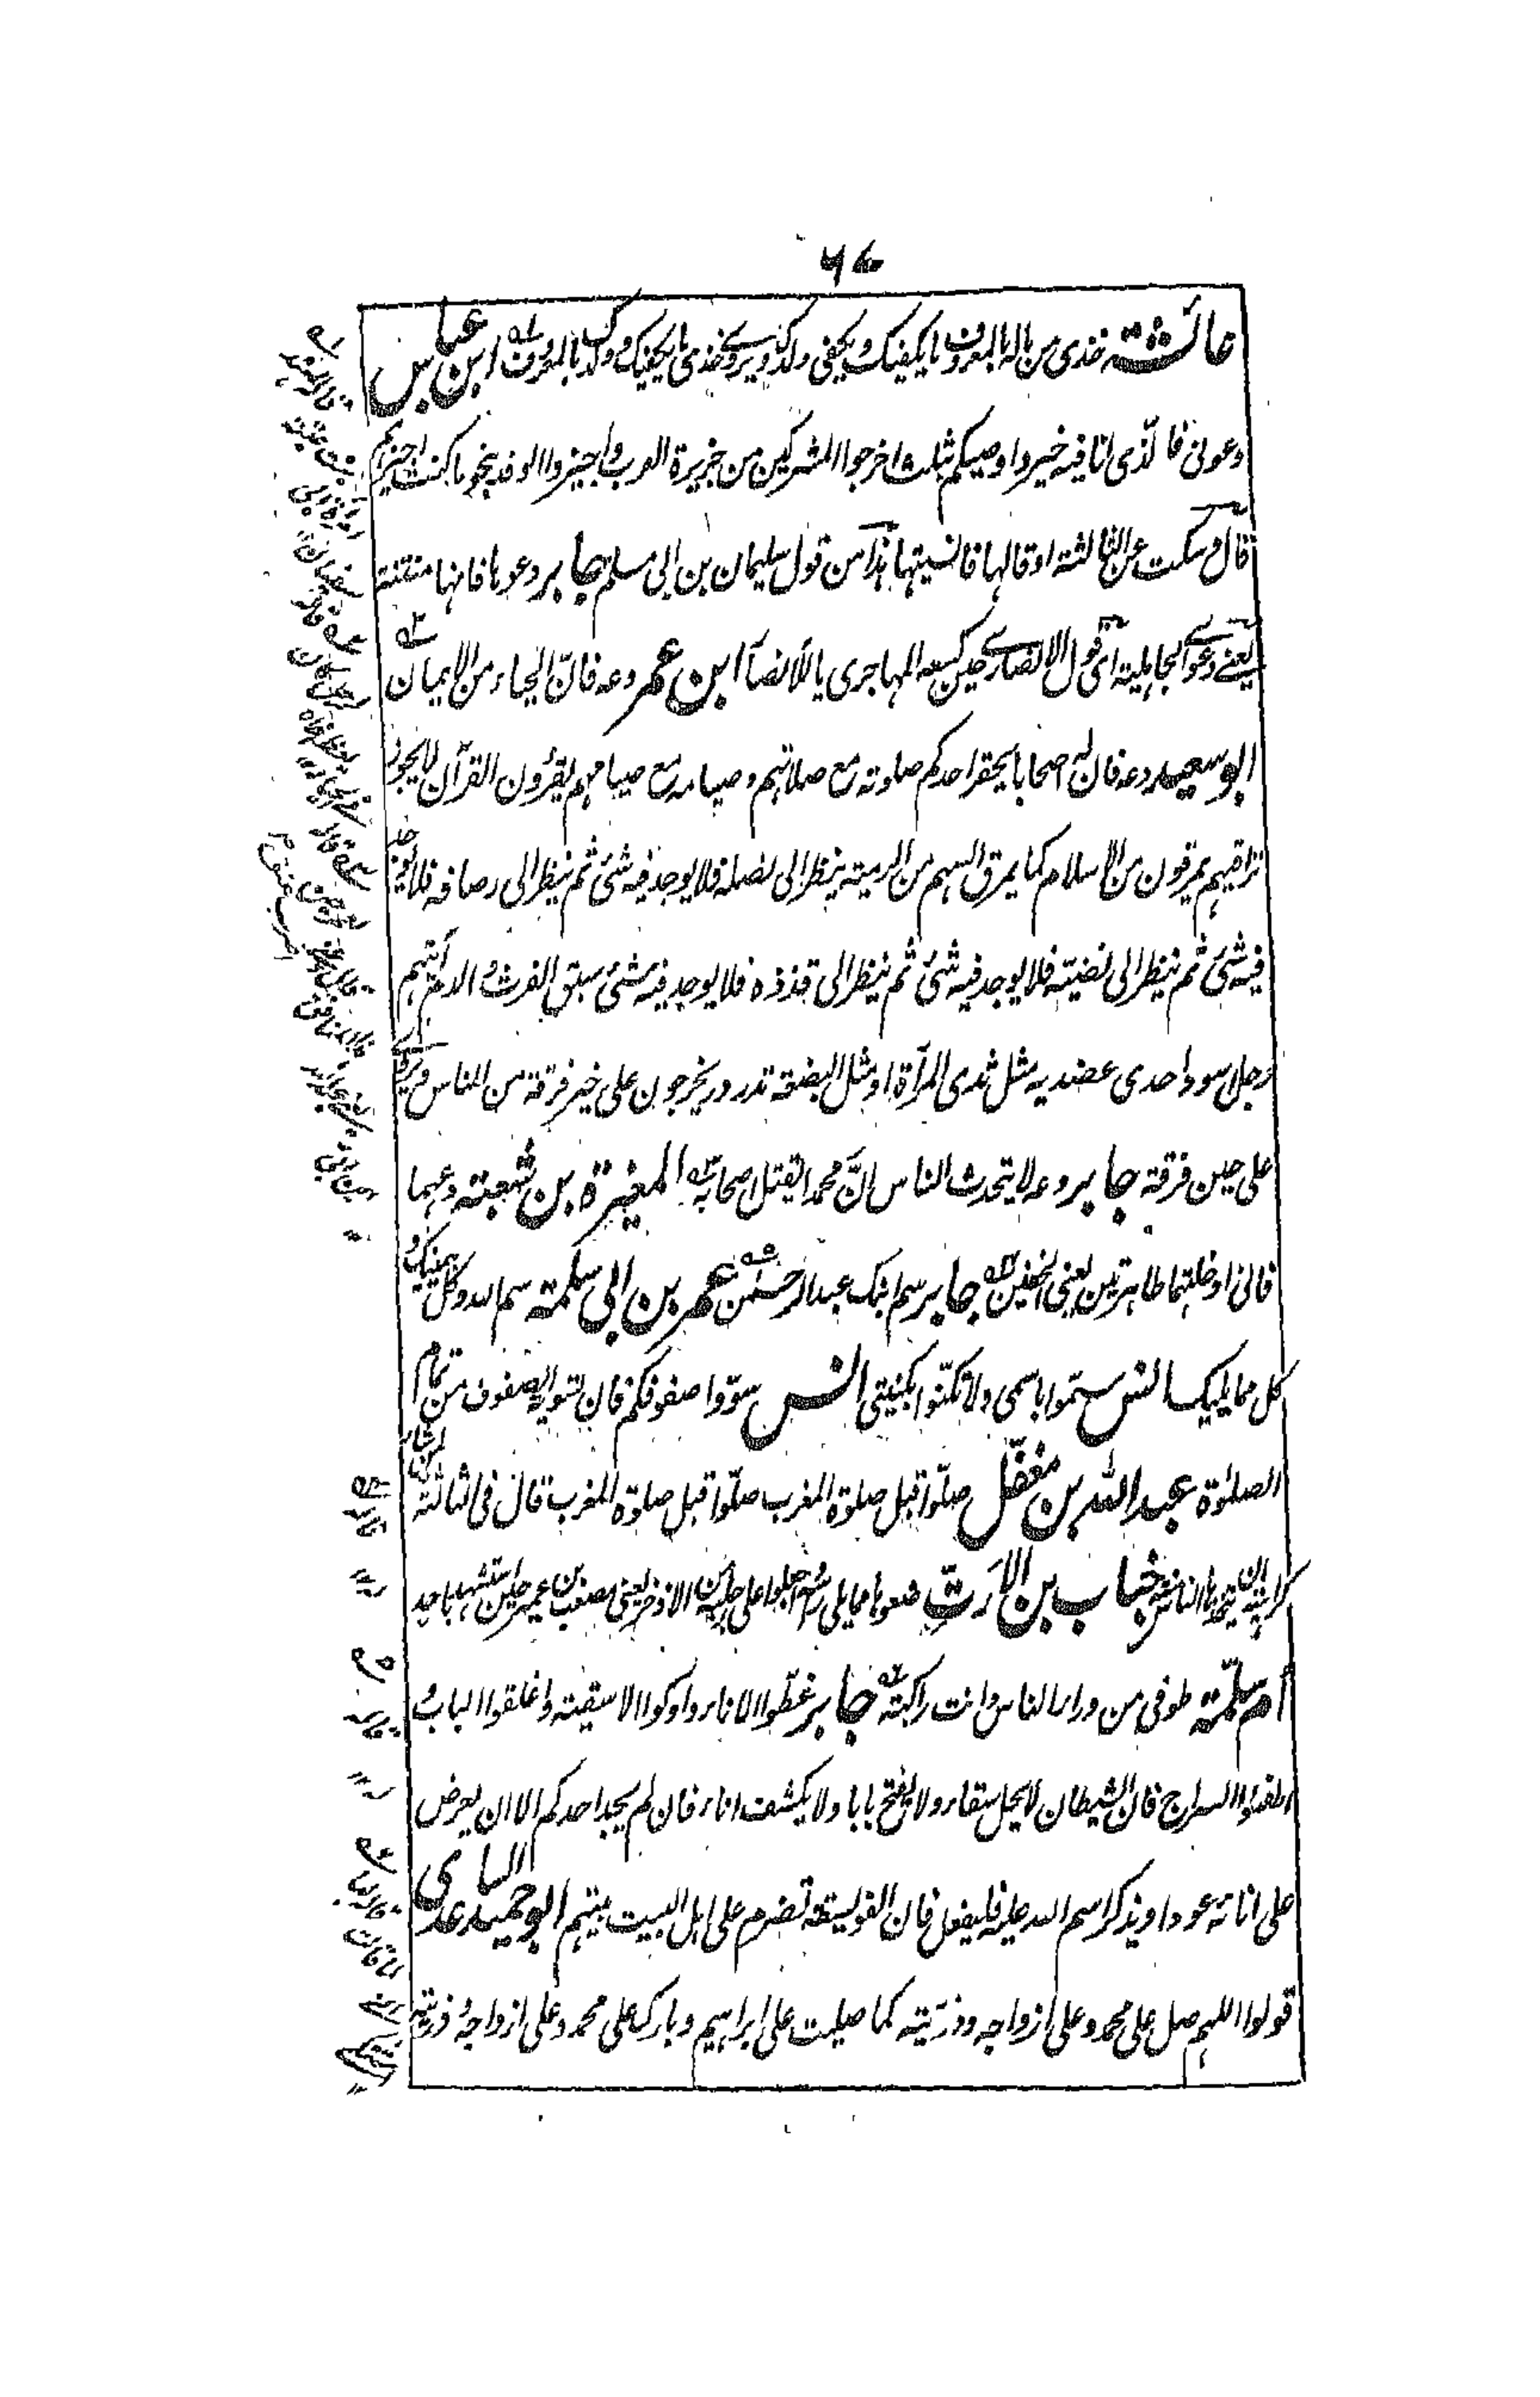 ٦٧
عائشة خذى من ماله بالمعروف ما يكفيك ويكفى ولدك ويروى خذى ما يكفيك وولدك بالمعروف ابن عباس
دعونى فالّذى انا فيه خير واوصيكم بثلث اخرجوا المشركين من جزيرة العرب واجيزوا الوفد بنحو ما كنت اجيزهم
قال وسكت عن الثالثة او قالها فانسيتها هذا من قول سليمان بن ابى مسلم جابر دعوها فانها منتنة
يعنى دعوى الجاهلية اى قول الانصارى حين كسعه المهاجرى يا للانصار ابن عمر دعه فانّ الحياء من الايمان
ابو سعيد دعه فان له اصحابا يحقر احدكم صلوته مع صلاتهم وصيامه مع صيامهم يقرؤن القرآن لا يجاوز
تراقيهم يمرقون من الاسلام كما يمرق السهم من الرمية ينظر الى نصله فلا يوجد فيه شئ ثم ينظر الى رصافه فلا يوجد
فيه شئ ثم ينظر الى نضيته فلا يوجد فيه شئ ثم ينظر الى قذذه فلا يوجد فيه شئ سبق الفرث والدم آيتهم
رجل اسود احدى عضديه مثل ثدى المرآة او مثل البضعة تدردر يخرجون على خير فرقة من الناس ويروى
على حين فرقة جابر دعه لا يتحدث الناس انّ محمدا يقتل اصحابه المغيرة بن شعبة دعهما
فانى ادخلتهما طاهرتين يعنى الخفين جابر سم ابنك عبد الرحمن عمر بن ابى سلمة سم الله وكل بيمينك و
كل مما يليك انس سمّوا باسمى ولا تكنّوا بكنيتى انس سوّوا صفوفكم فان تسوية الصفوف من تمام
الصلوٰة عبد الله بن مغفّل صلّوا قبل صلوٰة المغرب صلّوا قبل صلوٰة المغرب قال فى الثالثة لمن شاء
كراهية ان يتخذها الناس سنة خباب بن الارتّ ضعوها مما يلى رأسه واجعلوا على رجليه من الاذخر يعنى مصعب بن عمير حين استشهد باحد
ام سلمة طوفى من وراء الناس وانت راكبة جابر غطّوا الاناء واوكوا الاسقية واغلقوا الباب و
اطفئوا السراج فان الشيطان لا يحل سقاء ولا يفتح بابا ولا يكشف اناء فان لم يجد احدكم الا ان يعرض
على انائه عودا ويذكر اسم الله عليه فليفعل فان الفويسقة تضرم على اهل البيت بيتهم ابو حميد الساعدى
قولوا اللهم صل على محمد وعلى ازواجه وذريته كما صليت على ابراهيم وبارك على محمد وعلى ازواجه وذريته